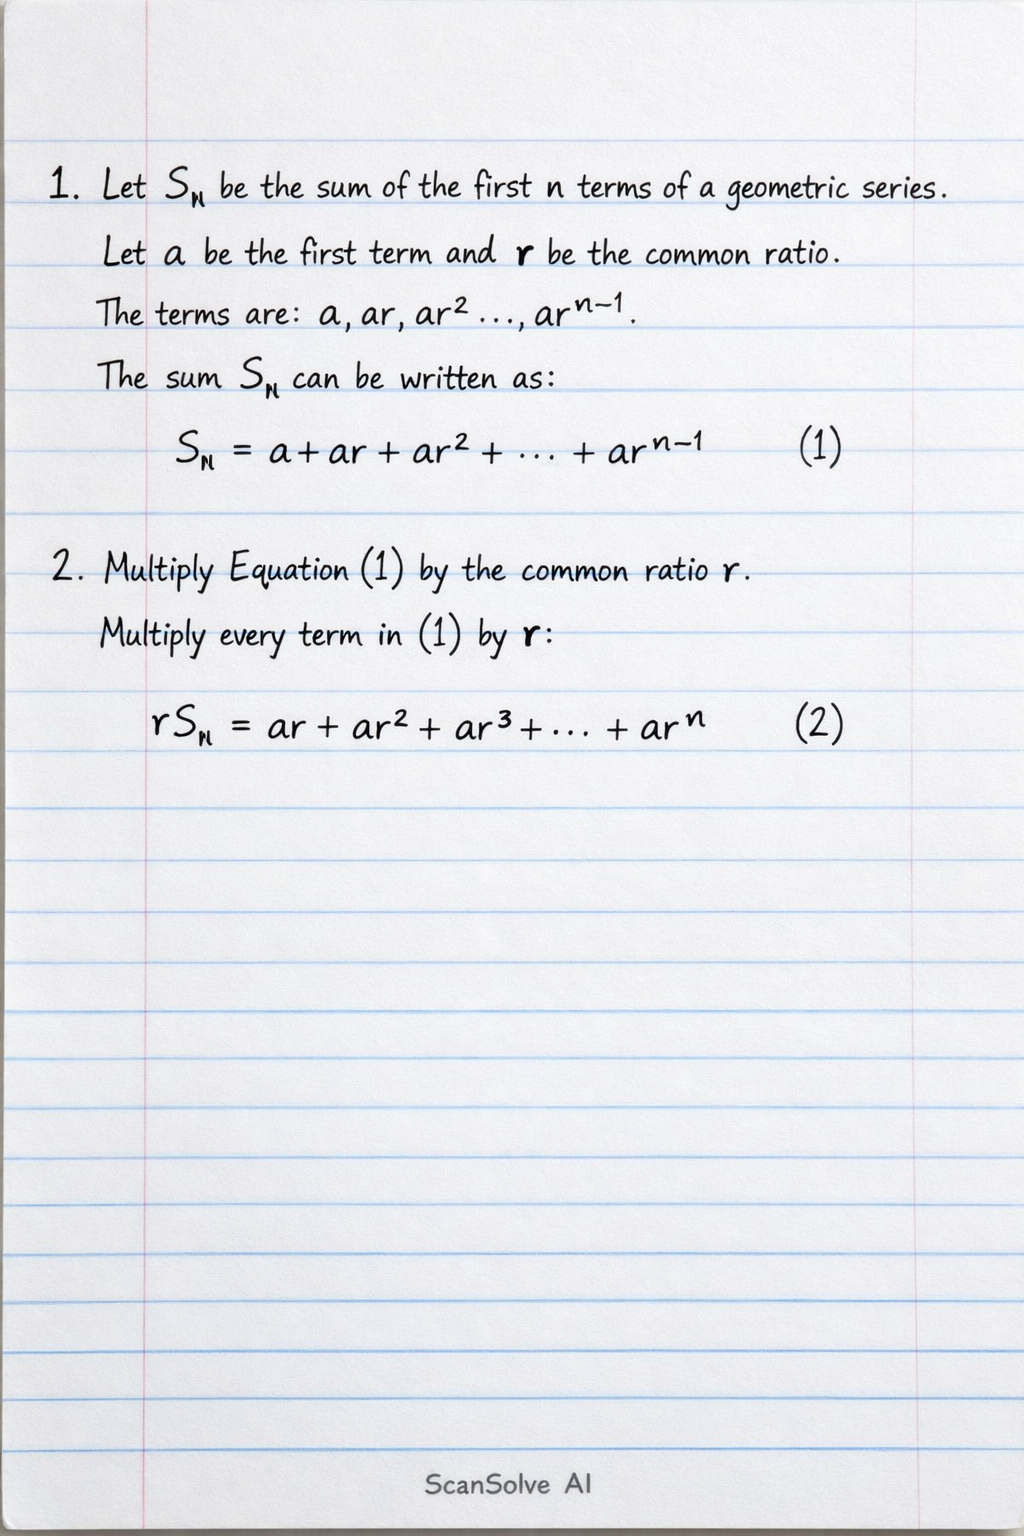 1. Let Sₙ be the sum of the first n terms of a geometric series.
Let a be the first term and r be the common ratio.
The terms are: a, ar, ar² ..., arⁿ⁻¹.
The sum Sₙ can be written as:
Sₙ = a + ar + ar² + ... + arⁿ⁻¹ (1)
2. Multiply Equation (1) by the common ratio r.
Multiply every term in (1) by r:
rSₙ = ar + ar² + ar³ + ... + arⁿ (2)
ScanSolve AI